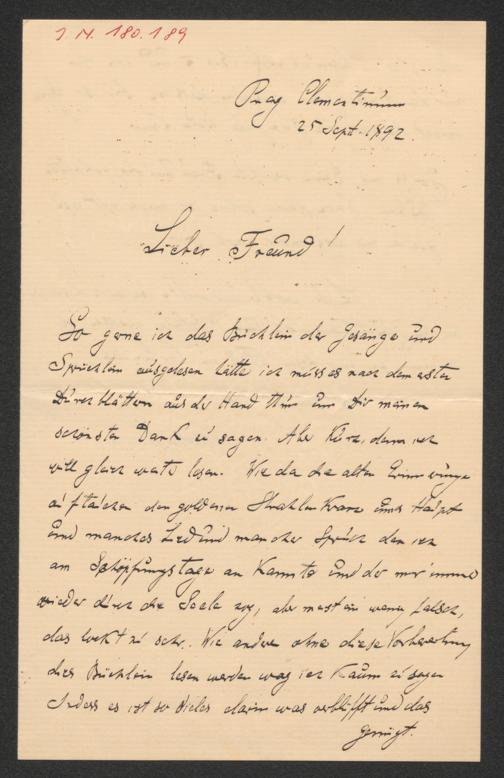 J. N. 180.189
Prag Clementinum
25 Sept. 1892.
Lieber Freund!
So gerne ich das Büchlein der Gesänge und
Sprüchlein ausgelesen hätte ich muss es nach dem ersten
Durchblättern aus der Hand thun um Dir meinen
schönsten Dank zu sagen. Aber kurz, denn ich
will gleich weiter lesen. Wie da die alten Erinnerungen
auftauchen den goldenen Strahlenkranz ums Haupt
und manches Lied und mancher Spruch den ich
am Schöpfungstage an kannte und der mir immer
wieder durch die Seele zog, aber meist ein wenig falsch,
das lockt zu sehr. Wie andere ohne diese Vorbereitung
dies Büchlein lesen werden wag ich kaum zu sagen
Indess es ist so Vieles darin was verblüfft und das
genügt.